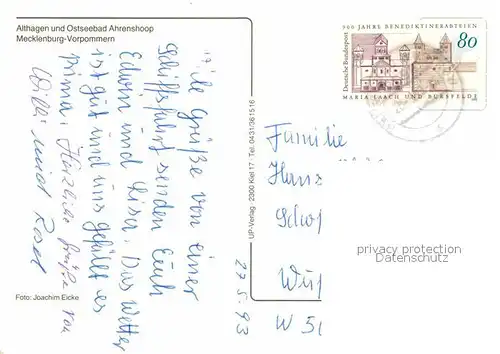 Althagen und Ostseebad Ahrenshoop
Mecklenburg-Vorpommern
Viele Grüße von einer
Schiffsfahrt senden Euch
Edwin und Lisa. Das Wetter
ist gut und uns gefällt es
prima. Herzliche Grüße von
Willi und Rosel
27.5.93
Foto: Joachim Eicke
UP-Verlag · 2300 Kiel 17 · Tel. 0431/061516
900 JAHRE BENEDIKTINERABTEIEN
Deutsche Bundespost
80
MARIA LAACH UND BURSFELDE
Familie
Hans
Scho
Wup
W 56
privacy protection
Datenschutz